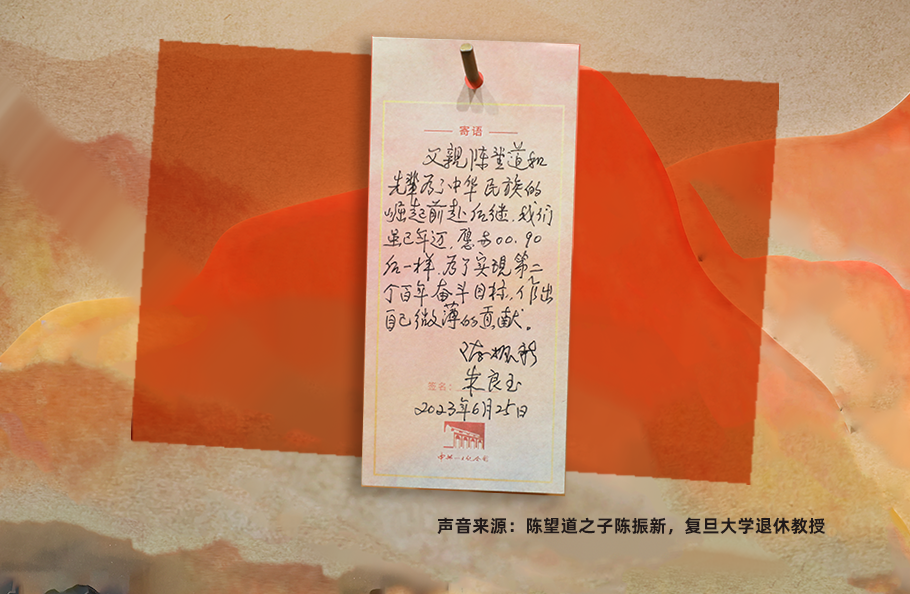 寄语
父親陈望道和
先辈为了中华民族的
崛起前赴后继。我们
虽已年迈，愿与00.90
后一样.为了实现第二
个百年奋斗目标，作出
自己微薄的贡献。
陈振新
签名：朱良玉
2023年6月25日
声音来源：陈望道之子陈振新，复旦大学退休教授